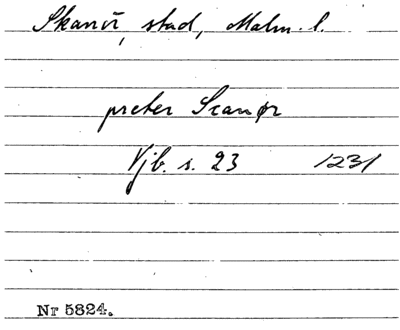 Skanör, stad, Malm. l.
preter Scanør
Vjb. s. 23 1231
Nr 5824.